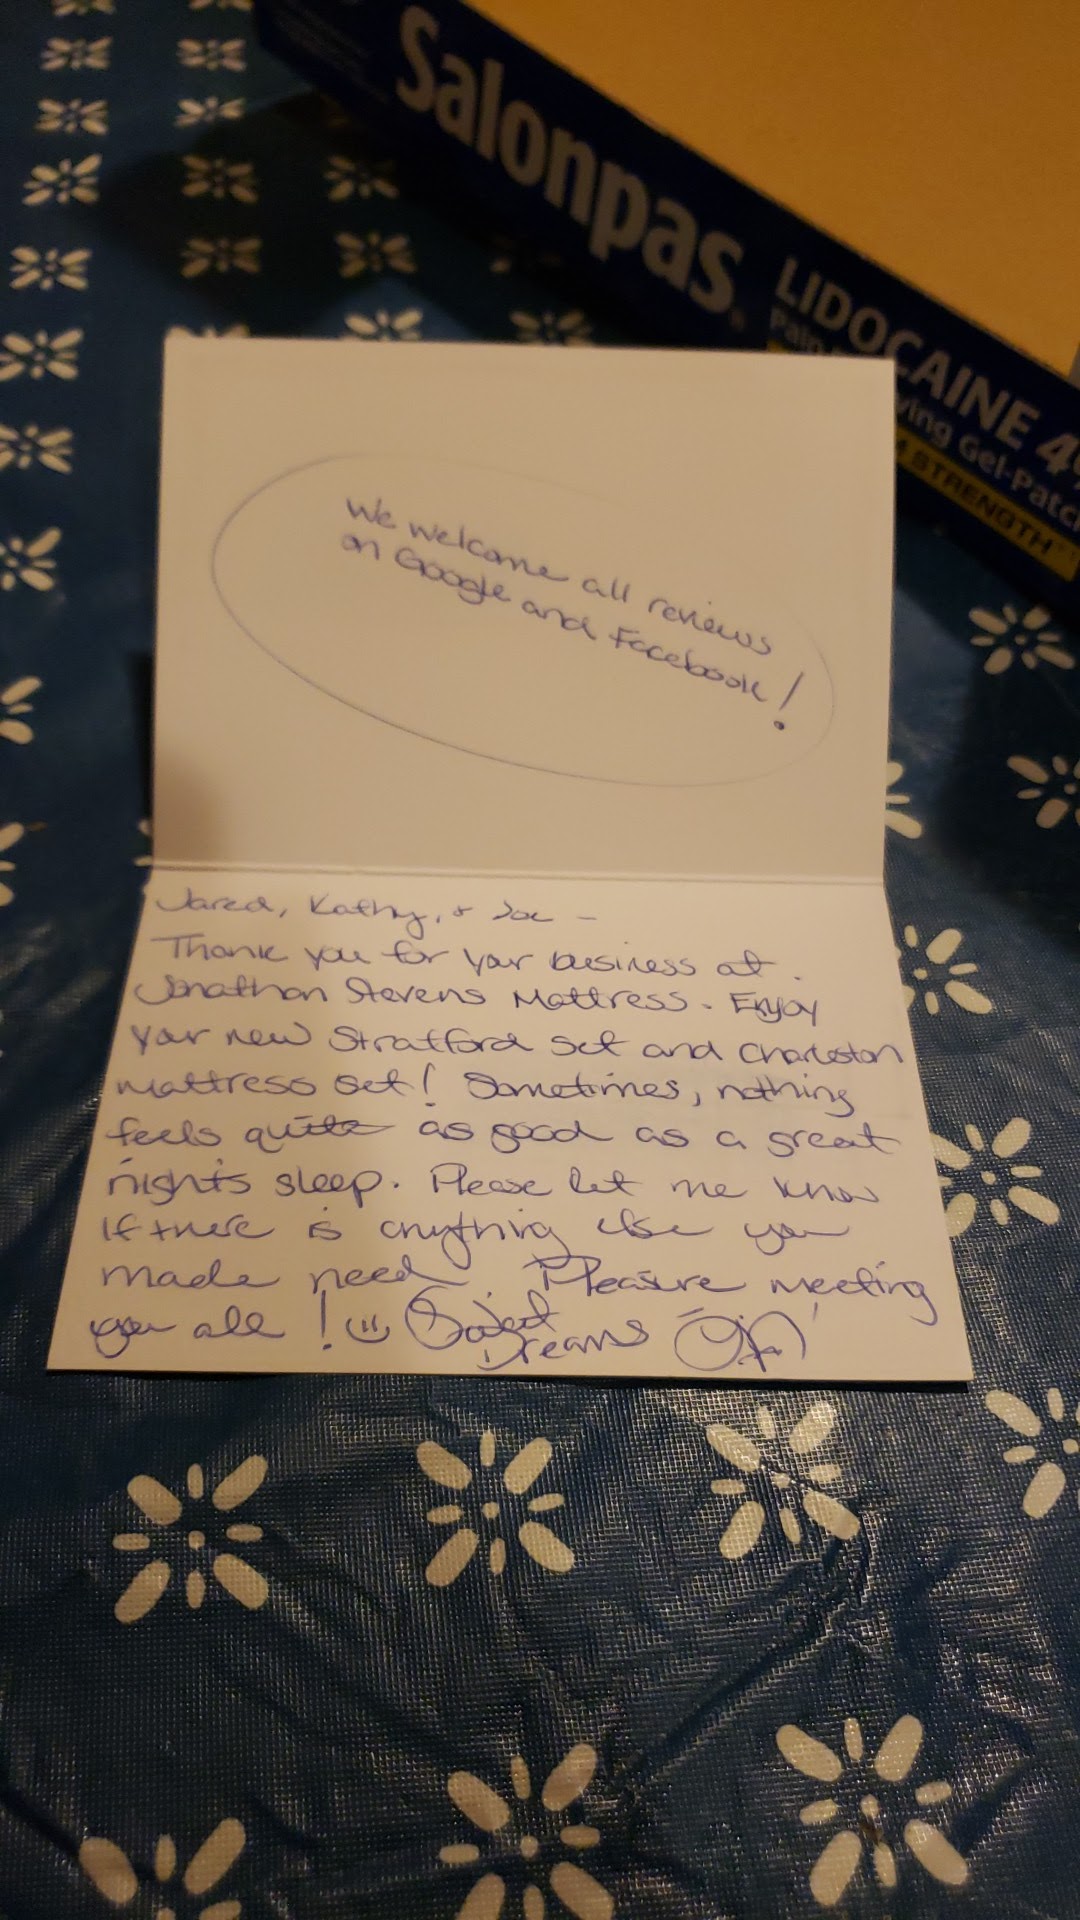 Salonpas®
LIDOCAINE 4%
Pain Relieving Gel-Patch
STRENGTH
We welcome all reviews
on Google and Facebook!
Jared, Kathy, & Joe -
Thank you for your business at
Jonathan Stevens Mattress. Enjoy
your new Stratford set and Charleston
mattress set! Sometimes, nothing
feels quite as good as a great
nights sleep. Please let me know
if there is anything else you
made need. Pleasure meeting
you all! Sweet
Dreams